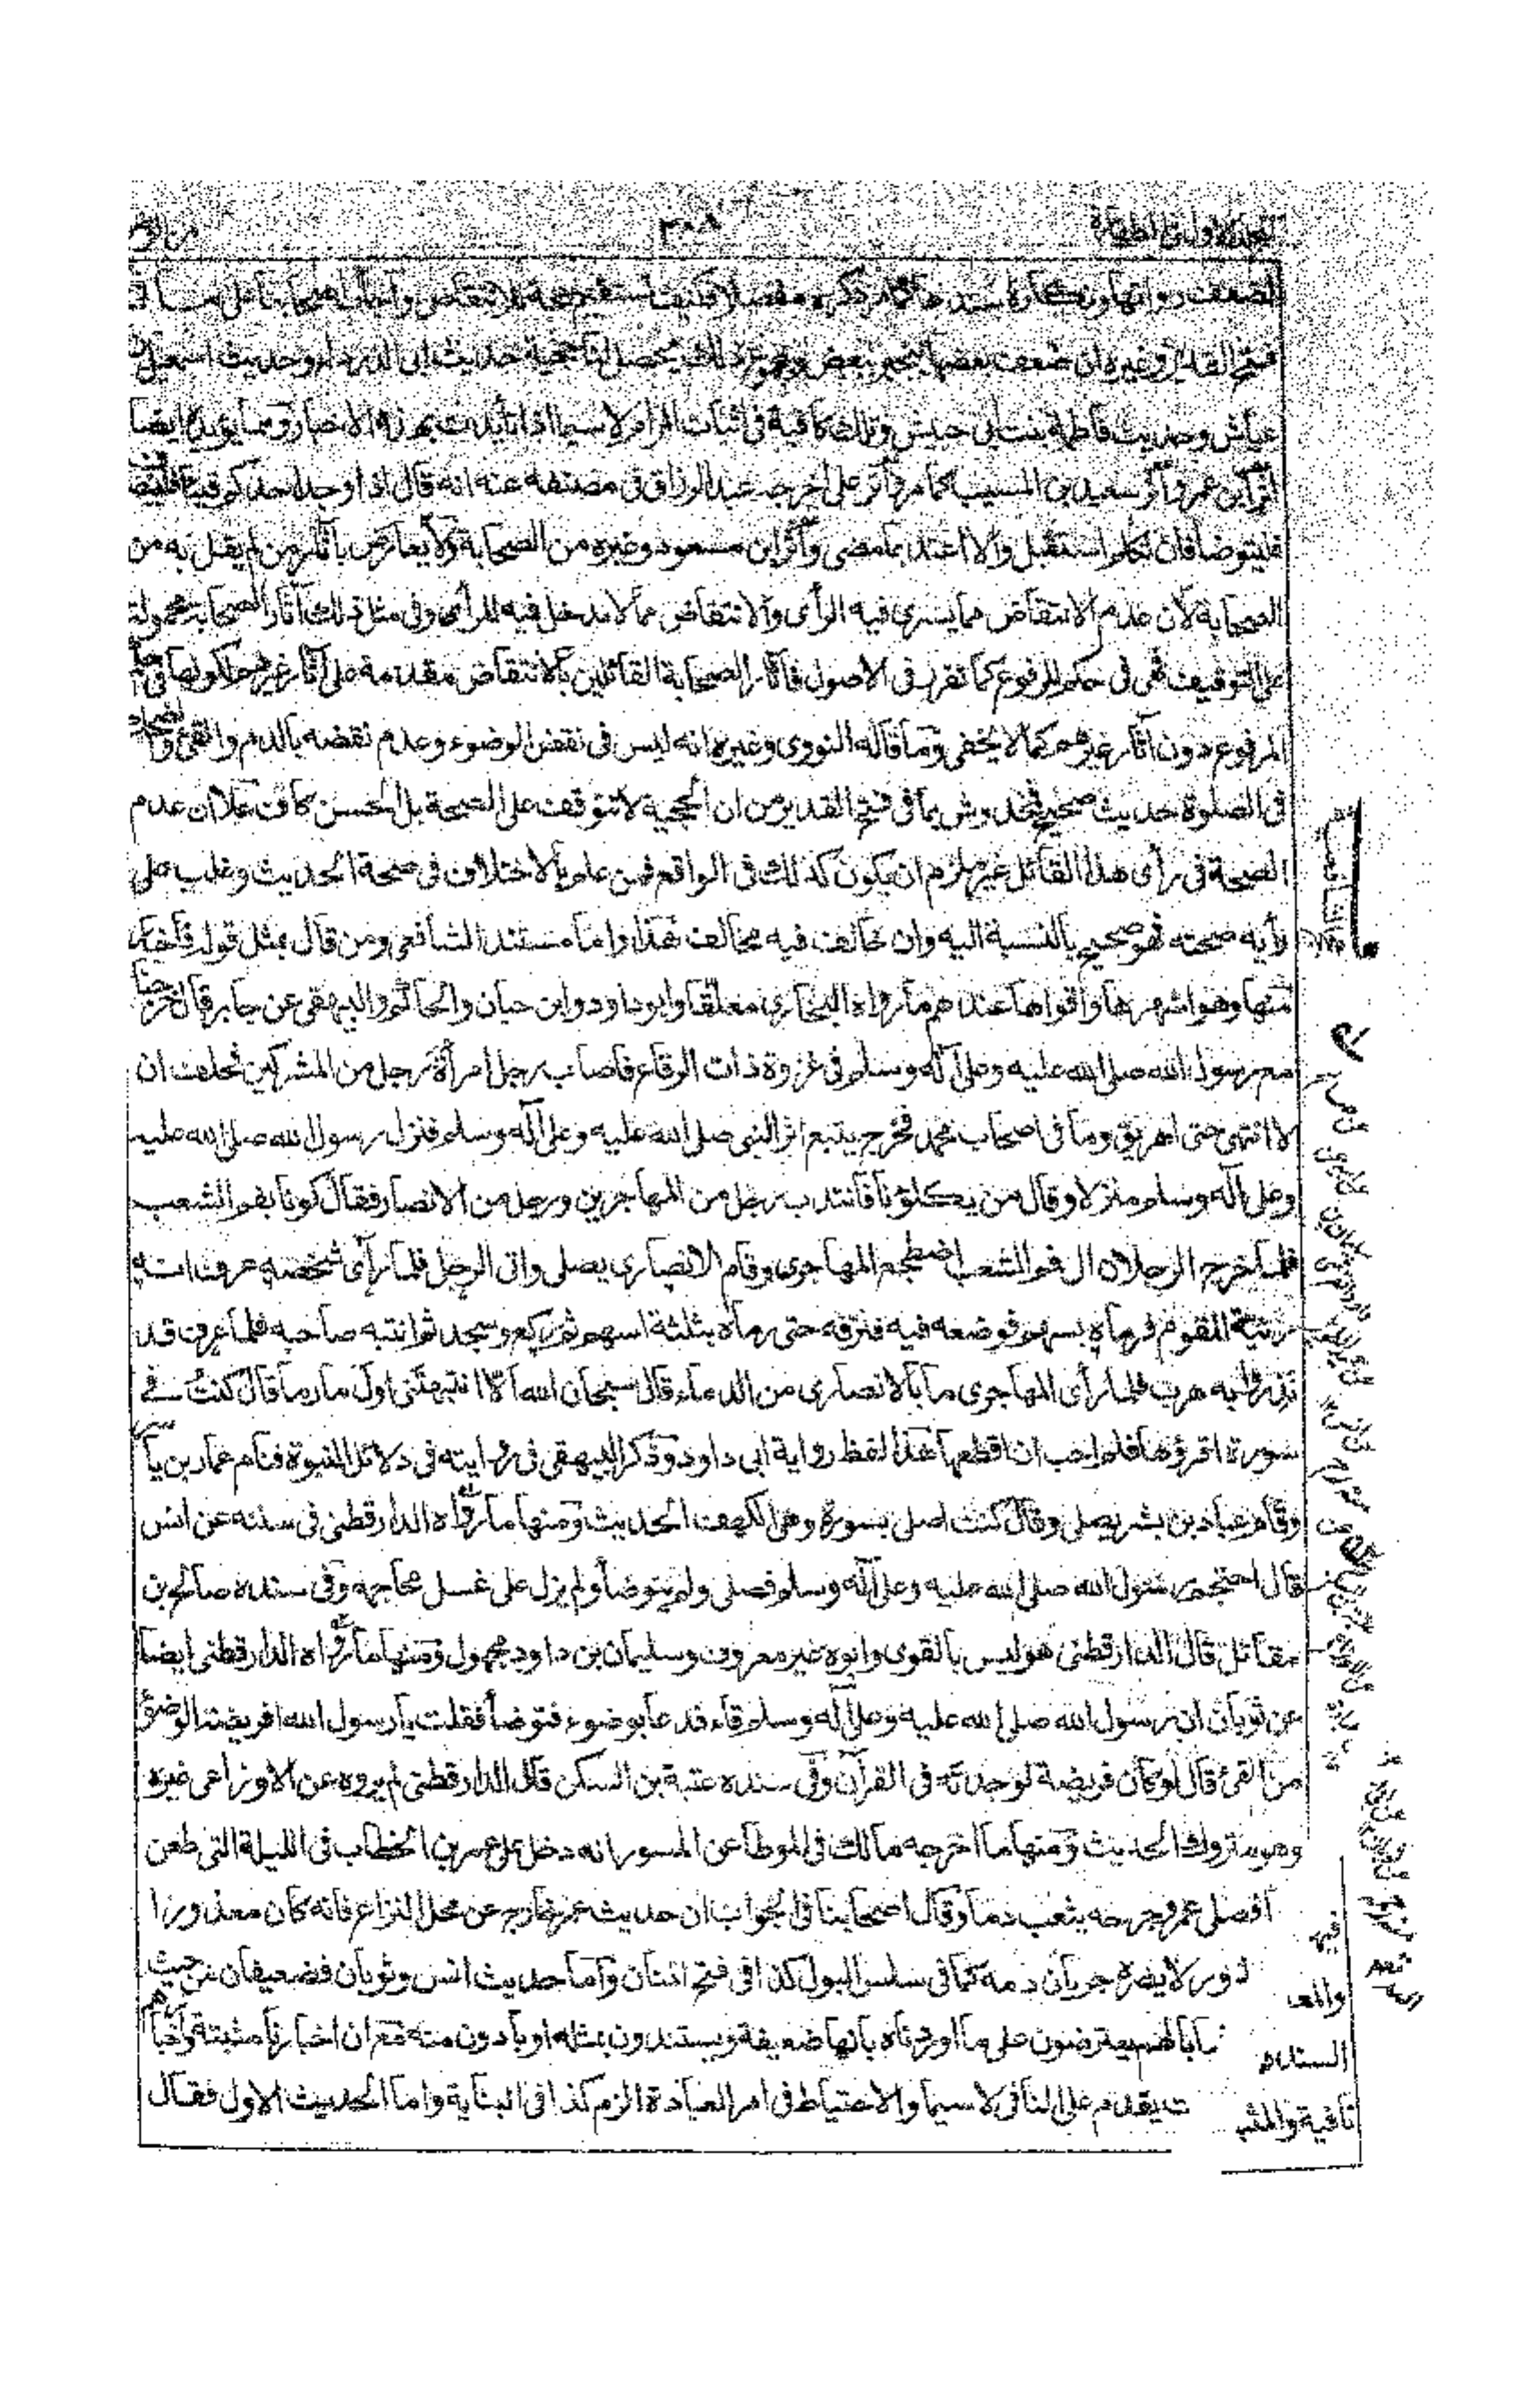 ٣٠٨
لضعف رواتها ونكارة سندها كما مر ذكره مفصلا فكيف يستقيم حجة للانتقاض وأجاب أصحابنا على ما في
فتح القدير وغيره ان ضعف بعضها ينجبر ببعض ومع ذلك يحصل لنا حجية حديث ابى الدرداء وحديث اسمعيل بن
عياش وحديث فاطمة بنت ابى حبيش وتلك كافية فى اثبات المرام لا سيما اذا تأيدت بهذه الاخبار ومما يؤيده ايضا
أثر ابن عمر وأثر سعيد بن المسيب كما مر وأثر على أخرجه عبد الرزاق فى مصنفه عنه انه قال اذا وجد احدكم قيئا
فليتوضأ فان تكلم استقبل والا اعتد بما مضى وأثر ابن مسعود وغيره من الصحابة ولا يعارض بآثار من لم يقل به من
الصحابة لان عدم الانتقاض مما يسرى فيه الرأى والانتقاض مما لا يدخل فيه للرأى وفى مثل ذلك آثار الصحابة محمولة
على التوقيف فهى فى حكم المرفوع كما تقرر فى الاصول فآثار الصحابة القائلين بالانتقاض مقدمة على آثار غيرهم لكونها فى حكم
المرفوع دون آثار غيرهم كما لا يخفى وما قاله النووى وغيره انه ليس فى نقض الوضوء وعدم نقضه بالدم والقئ والضحك
فى الصلوة حديث صحيح فمخدوش بما فى فتح القدير من ان الحجية لا تتوقف على الصحة بل الحسن كاف علا ان عدم
الصحة فى رأى هذا القائل غير ملزم ان يكون كذلك فى الواقع فمن علم بالاختلاف فى صحة الحديث وغلب على
رأيه صحته فهو صحيح بالنسبة اليه وان خالف فيه مخالف هذا واما مستند الشافعى ومن قال بمثل قوله فأخبار
منها وهو اشهرها وأقواها عندهم ما رواه البخارى معلقا وابو داود وابن حبان والحاكم والبيهقى عن جابر قال خرجنا
مع رسول الله صلى الله عليه وعلى آله وسلم فى غزوة ذات الرقاع فاصاب رجل امرأة رجل من المشركين فحلف ان
لا انتهى حتى اهريق دما فى اصحاب محمد فخرج يتبع اثر النبى صلى الله عليه وعلى آله وسلم فنزل رسول الله صلى الله عليه
وعلى آله وسلم منزلا وقال من يكلؤنا فانتدب رجل من المهاجرين ورجل من الانصار فقال كونا بفم الشعب
فلما خرج الرجلان الى فم الشعب اضطجع المهاجرى وقام الانصارى يصلى واتى الرجل فلما رأى شخصه عرف انه
ربيئة للقوم فرماه بسهم فوضعه فيه فنزفه حتى رماه بثلثة اسهم ثم ركع وسجد ثم انتبه صاحبه فلما عرف قد
نذروا به هرب فلما رأى المهاجرى ما بالانصارى من الدماء قال سبحان الله ألا انبهتنى اول ما رما قال كنت فى
سورة اقرؤها فلم احب ان اقطعها هذا لفظ رواية ابى داود وذكر البيهقى فى روايته فى دلائل النبوة فنام عمار بن ياسر
وقام عباد بن بشر يصلى وقال كنت اصلى بسورة وهى الكهف الحديث ومنها ما رواه الدارقطنى فى سننه عن انس
قال احتجم رسول الله صلى الله عليه وعلى آله وسلم فصلى ولم يتوضأ ولم يزل على غسل محاجمه وفى سنده صالح بن
مقاتل قال الدارقطنى هو ليس بالقوى وابوه غير معروف وسليمان بن داود مجهول ومنها ما رواه الدارقطنى ايضا
عن ثوبان ان رسول الله صلى الله عليه وعلى آله وسلم قاء فدعا بوضوء فتوضأ فقلت يا رسول الله افريضة الوضوء
من القئ قال لو كان فريضة لوجدته فى القرآن وفى سنده عتبة بن السكن قال الدارقطنى لم يروه عن الاوزاعى غيره
وهو متروك الحديث ومنها ما اخرجه مالك فى الموطا عن المسور انه دخل على عمر بن الخطاب فى الليلة التى طعن
فيها فصلى عمر وجرحه يثعب دما وقال اصحابنا فى الجواب ان حديث عمر خارج عن محل النزاع فانه كان معذورا
والمعذور لا يضره جريان دمه كما فى سلس البول كذا فى فتح المنان واما حديث انس وثوبان فضعيفان من حيث
السند فما بالهم يعترضون على ما اوردناه بانها ضعيفة ويستندون بمثله او بأدون منه مع ان اخبارنا مثبتة واخبارهم
نافية والمثبت يقدم على النافى لا سيما والاحتياط فى امر العبادة الزم كذا فى البناية واما الحديث الاول فقال